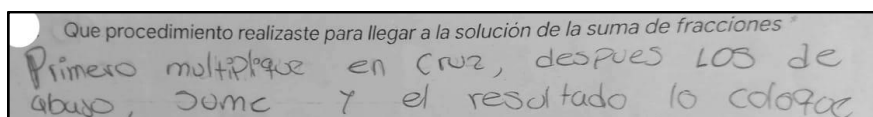 Que procedimiento realizaste para llegar a la solución de la suma de fracciones
Primero multiplique en Cruz, despues LOS de
abajo, sume y el resultado lo coloque